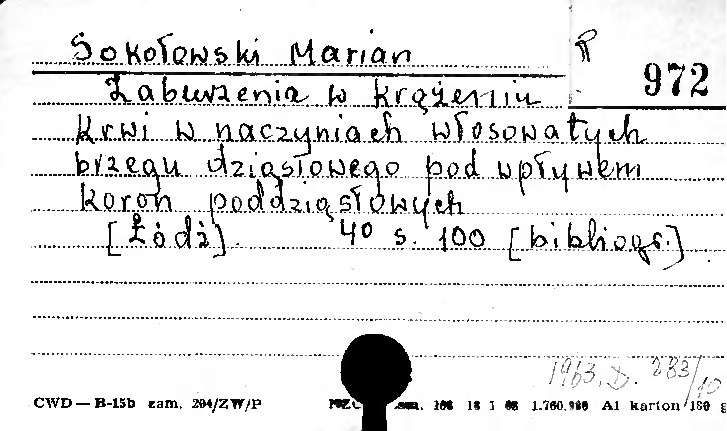 Sokołowski Marian P
972
Zaburzenia w krążeniu
krwi w naczyniach włosowatych
brzegu dziąsłowego pod wpływem
koron poddziąsłowych
[Łódź] 4° s. 100 [bibliogr.]
1963. D. 233/10
CWD — B-15b zam. 294/ZW/P 1.760.000 A1 karton 180 g